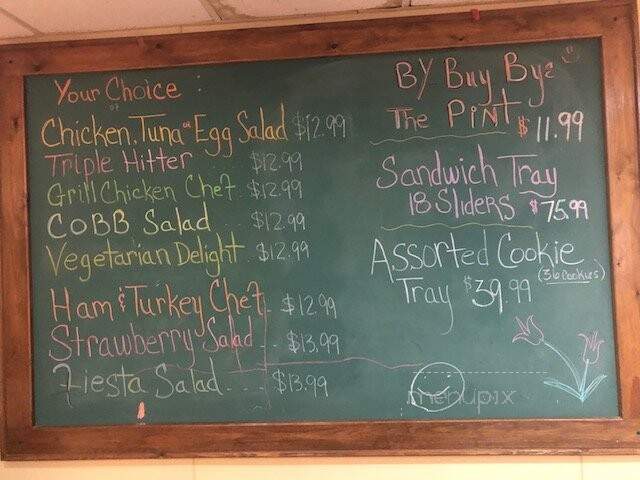 Your Choice :
of
Chicken, Tuna or Egg Salad $12.99
Triple Hitter $12.99
Grill Chicken Chef $12.99
COBB Salad $12.99
Vegetarian Delight $12.99
Ham & Turkey Chef. $12.99
Strawberry Salad -- $13.99
Fiesta Salad --- $13.99
BY Buy Bye
The PINT $11.99
Sandwich Tray
18 Sliders $75.99
Assorted Cookie
(36 Cookies)
Tray $39.99
menupix